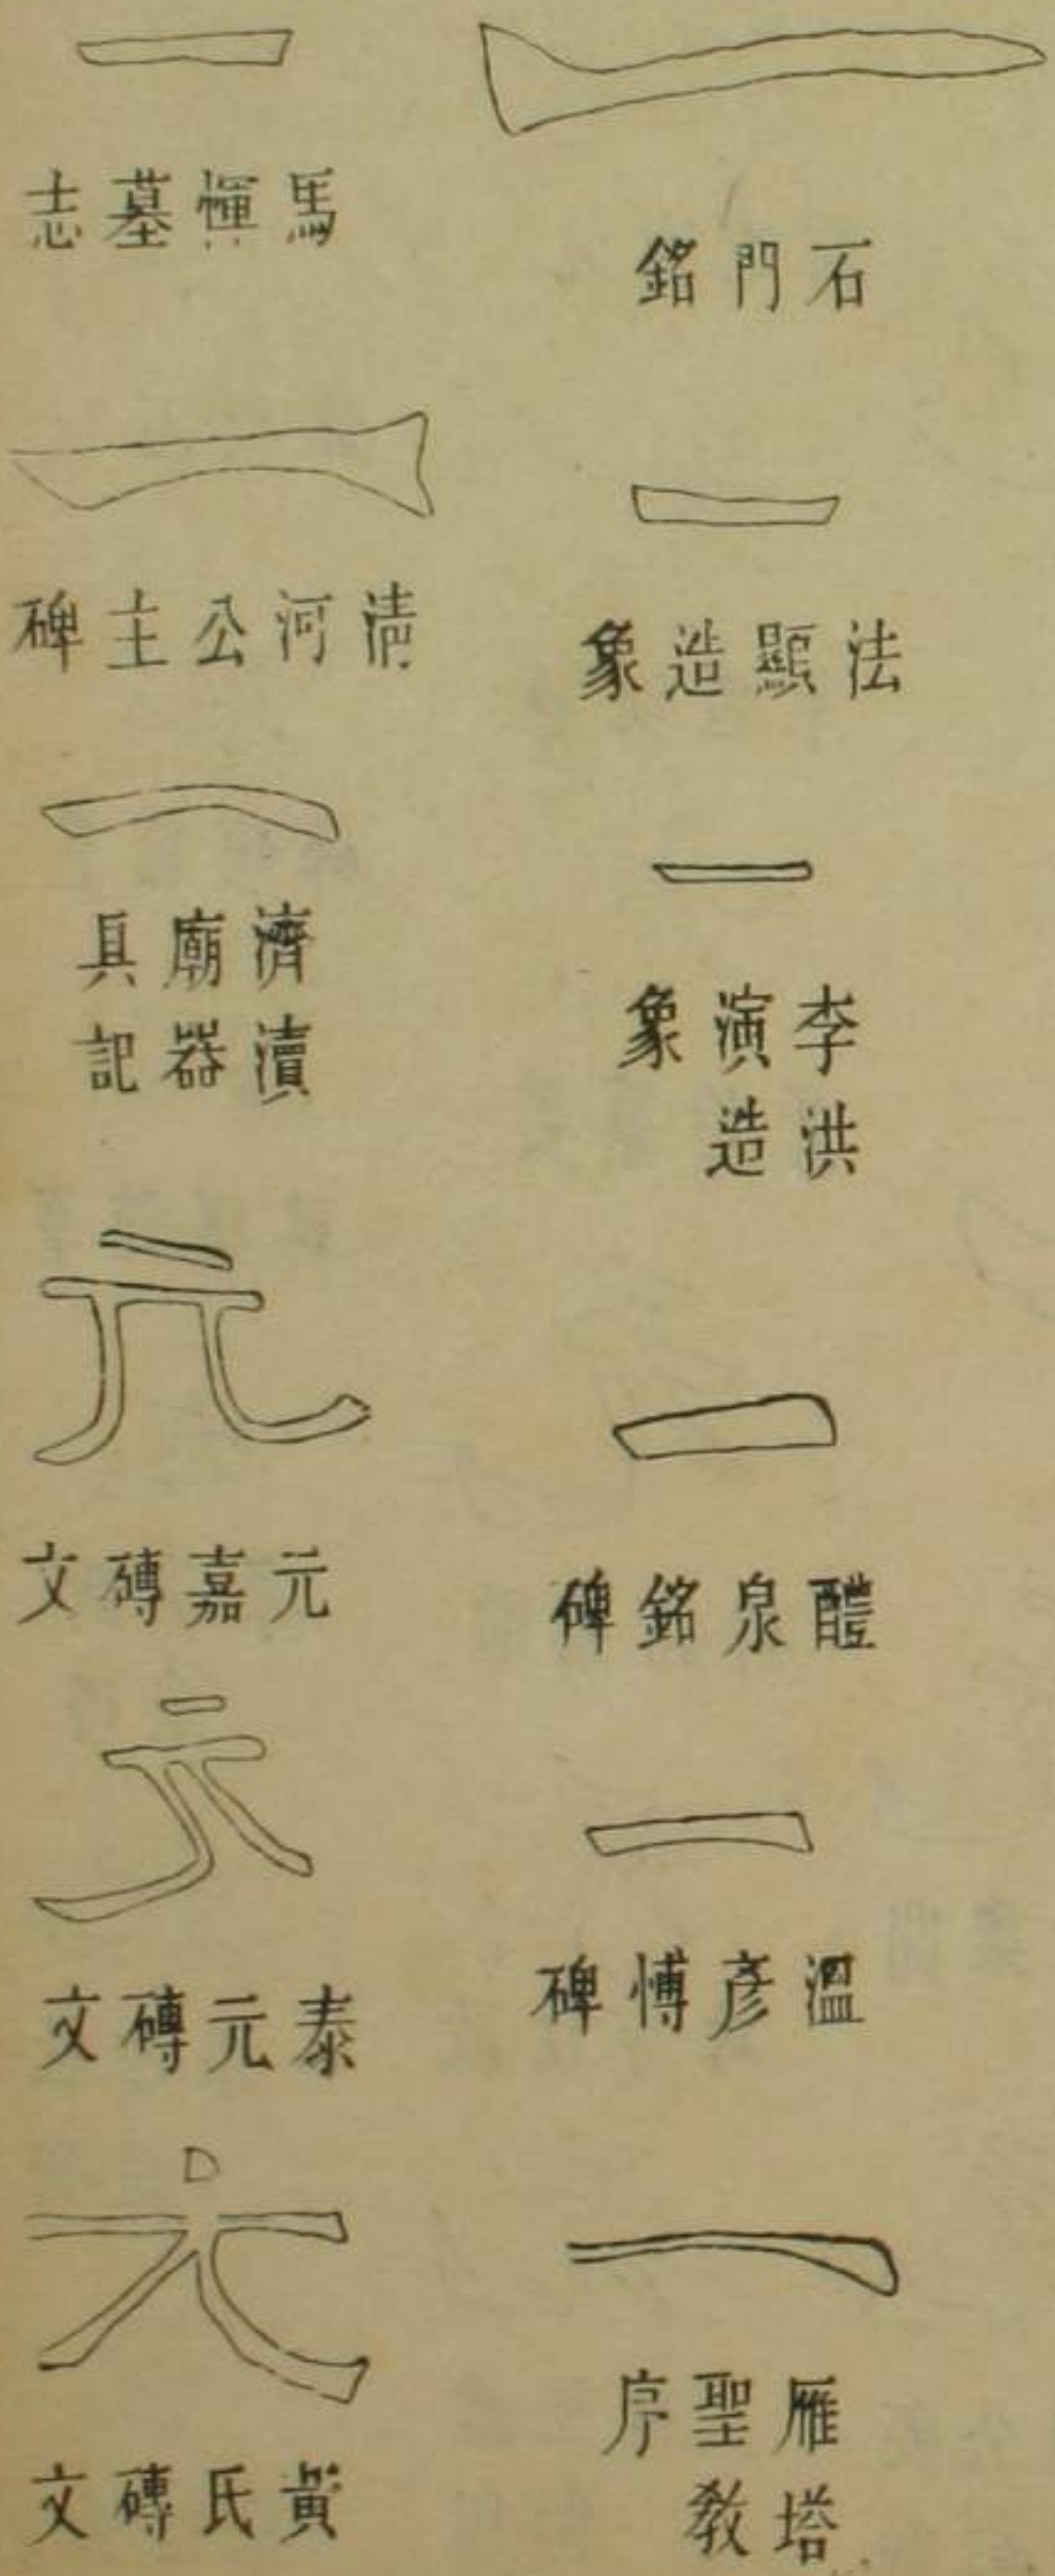 一
石門銘
一
法顯造象
一
李洪演造象
一
醴泉銘碑
一
温彥愽碑
一
雁塔聖敎序
一
馬惲墓志
一
清河公主碑
一
濟瀆廟器具記
元
元嘉磚文
元
泰元磚文
元
黃氏磚文